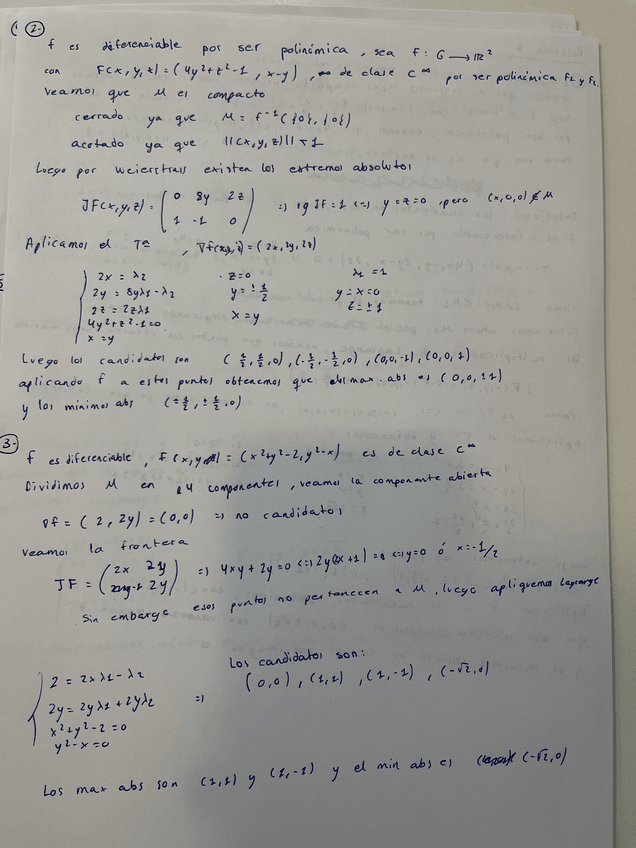 2-
f es diferenciable por ser polinómica, sea F: G → ℝ²
con F(x,y,z) = (4y²+z²-1, x-y), de clase C^∞ por ser polinómica F₁ y F₂
Veamos que M es compacto
cerrado ya que M = f⁻¹({0},{0})
acotado ya que ||(x,y,z)|| ≤ 1
Luego por Weierstrass existen los extremos absolutos
JF(x,y,z) = (0 8y 2z
1 -1 0) => rg JF = 1 <=> y=z=0, pero (x,0,0) ∉ M
Aplicamos el Tª, ∇f(x,y,z) = (2x,2y,2z)
2x = λ2 · z=0 λ1 = 1
2y = 8yλ1 - λ2 y = ± 1/2 y=x=0
2z = 2zλ1 x=y z=±1
4y²+z²-1=0
x=y
Luego los candidatos son (1/2, 1/2, 0), (-1/2, -1/2, 0), (0,0,-1), (0,0,1)
aplicando f a estos puntos obtenemos que el max. abs es (0,0,±1)
y los mínimos abs (±1/2, ±1/2, 0)
3-
f es diferenciable, F(x,y) = (x²+y²-2, y²-x) es de clase C^∞
Dividimos M en 4 componentes, veamos la componente abierta
∇f = (2, 2y) = (0,0) => no candidatos
Veamos la frontera
JF = (2x 2y
-1 2y) => 4xy + 2y = 0 <=> 2y(2x+1) = 0 <=> y=0 ó x=-1/2
Sin embargo esos puntos no pertenecen a M, luego apliquemos Lagrange
2 = 2xλ1 - λ2
2y = 2yλ1 + 2yλ2 =>
x²+y²-2=0
y²-x=0
Los candidatos son:
(0,0), (1,1), (1,-1), (-√2,0)
Los max abs son (1,1) y (1,-1) y el min abs es (-√2,0)